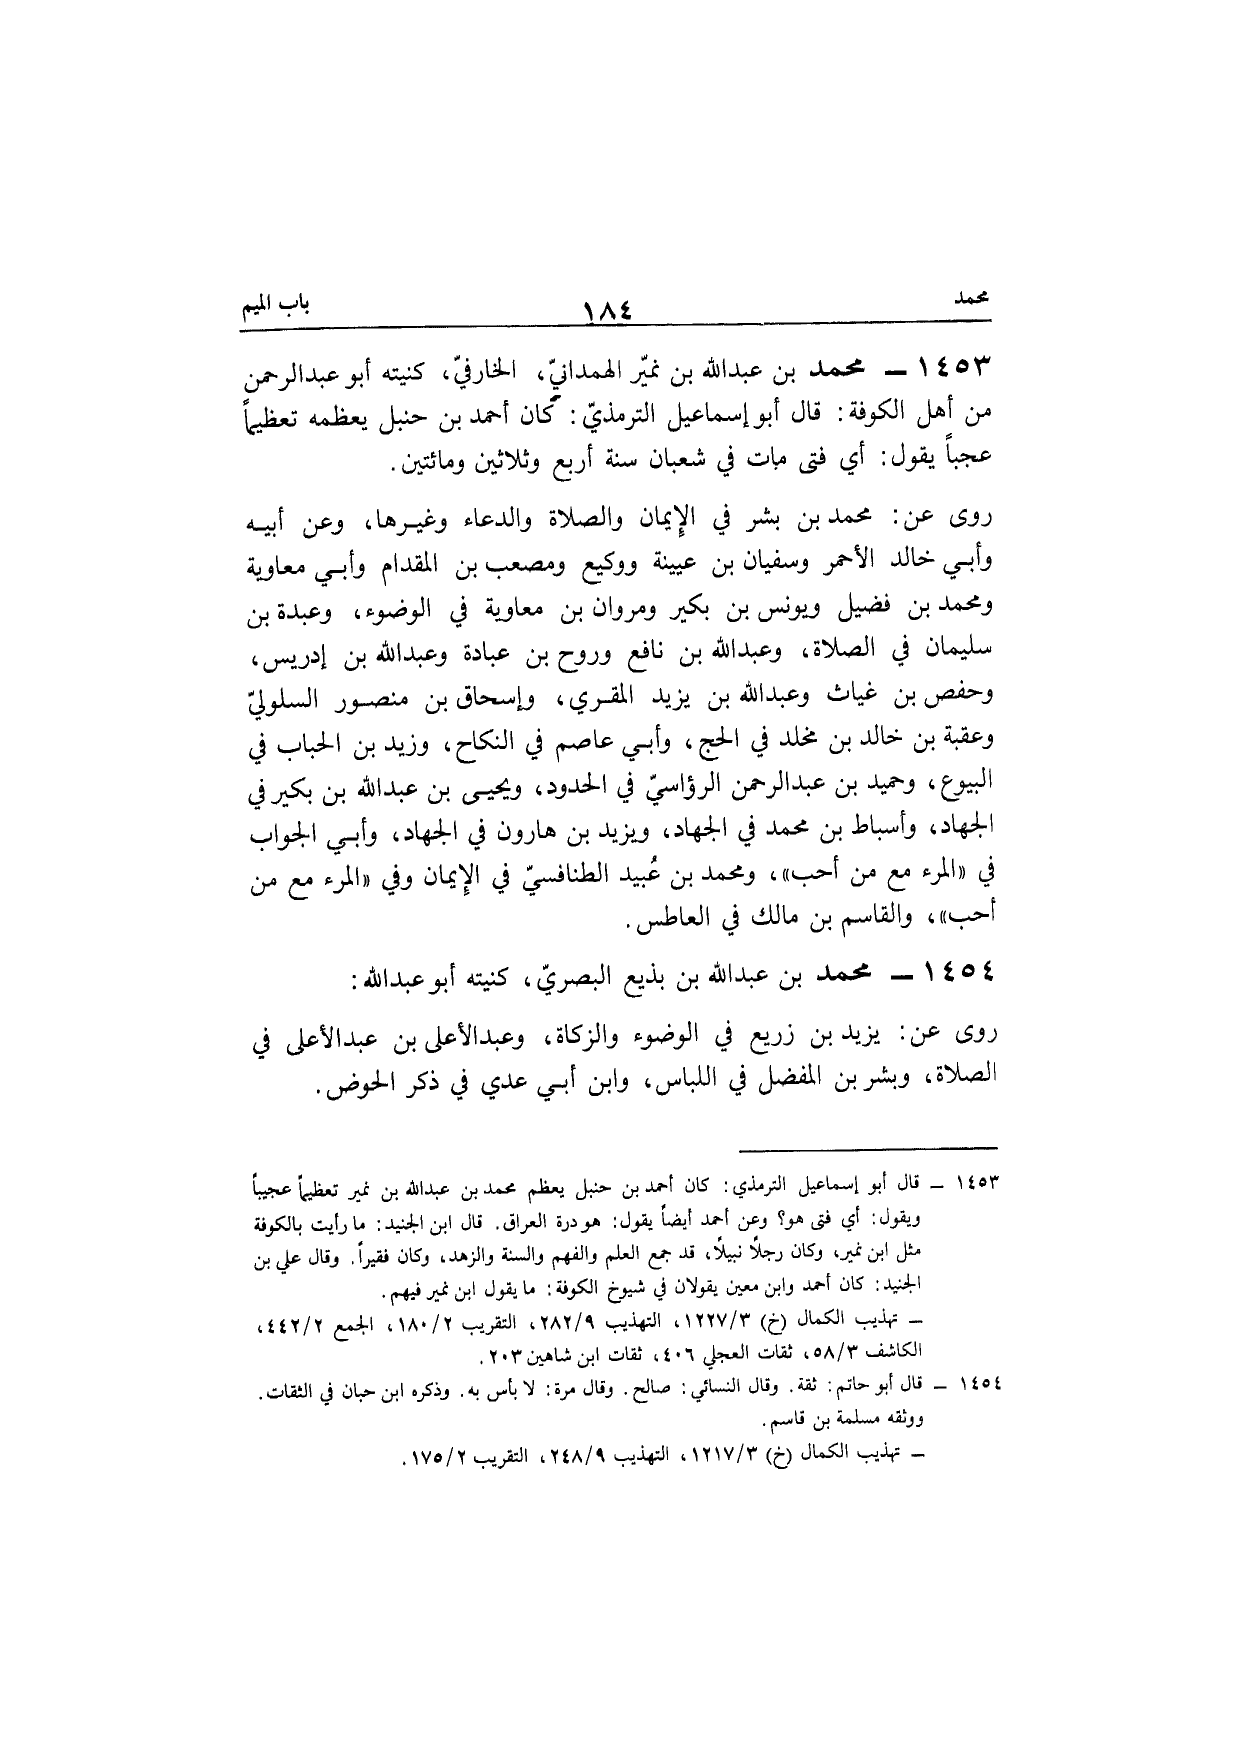 محمد ١٨٤ باب الميم
١٤٥٣ ــ محمد بن عبدالله بن نميّر الهمدانيّ، الخارفيّ، كنيته أبو عبدالرحمن
من أهل الكوفة: قال أبو إسماعيل الترمذيّ: كان أحمد بن حنبل يعظمه تعظيماً
عجباً يقول: أي فتى مات في شعبان سنة أربع وثلاثين ومائتين.
روى عن: محمد بن بشر في الإيمان والصلاة والدعاء وغيرها، وعن أبيه
وأبي خالد الأحمر وسفيان بن عيينة ووكيع ومصعب بن المقدام وأبي معاوية
ومحمد بن فضيل ويونس بن بكير ومروان بن معاوية في الوضوء، وعبدة بن
سليمان في الصلاة، وعبدالله بن نافع وروح بن عبادة وعبدالله بن إدريس،
وحفص بن غياث وعبدالله بن يزيد المقري، وإسحاق بن منصور السلوليّ
وعقبة بن خالد بن مخلد في الحج، وأبي عاصم في النكاح، وزيد بن الحباب في
البيوع، وحميد بن عبدالرحمن الرؤاسيّ في الحدود، ويحيى بن عبدالله بن بكير في
الجهاد، وأسباط بن محمد في الجهاد، ويزيد بن هارون في الجهاد، وأبي الجواب
في «المرء مع من أحب»، ومحمد بن عُبيد الطنافسيّ في الإيمان وفي «المرء مع من
أحب»، والقاسم بن مالك في العاطس.
١٤٥٤ ــ محمد بن عبدالله بن بذيع البصريّ، كنيته أبو عبدالله:
روى عن: يزيد بن زريع في الوضوء والزكاة، وعبدالأعلى بن عبدالأعلى في
الصلاة، وبشر بن المفضل في اللباس، وابن أبي عدي في ذكر الحوض.
١٤٥٣ ــ قال أبو إسماعيل الترمذي: كان أحمد بن حنبل يعظم محمد بن عبدالله بن نمير تعظيماً عجيباً
ويقول: أي فتى هو؟ وعن أحمد أيضاً يقول: هو درة العراق. قال ابن الجنيد: ما رأيت بالكوفة
مثل ابن نمير، وكان رجلاً نبيلاً، قد جمع العلم والفهم والسنة والزهد، وكان فقيراً. وقال علي بن
الجنيد: كان أحمد وابن معين يقولان في شيوخ الكوفة: ما يقول ابن نمير فيهم.
ــ تهذيب الكمال (خ) ١٢٢٧/٣، التهذيب ٢٨٢/٩، التقريب ١٨٠/٢، الجمع ٤٤٢/٢،
الكاشف ٥٨/٣، ثقات العجلي ٤٠٦، ثقات ابن شاهين ٢٠٣.
١٤٥٤ ــ قال أبو حاتم: ثقة. وقال النسائي: صالح. وقال مرة: لا بأس به. وذكره ابن حبان في الثقات.
ووثقه مسلمة بن قاسم.
ــ تهذيب الكمال (خ) ١٢١٧/٣، التهذيب ٢٤٨/٩، التقريب ١٧٥/٢.